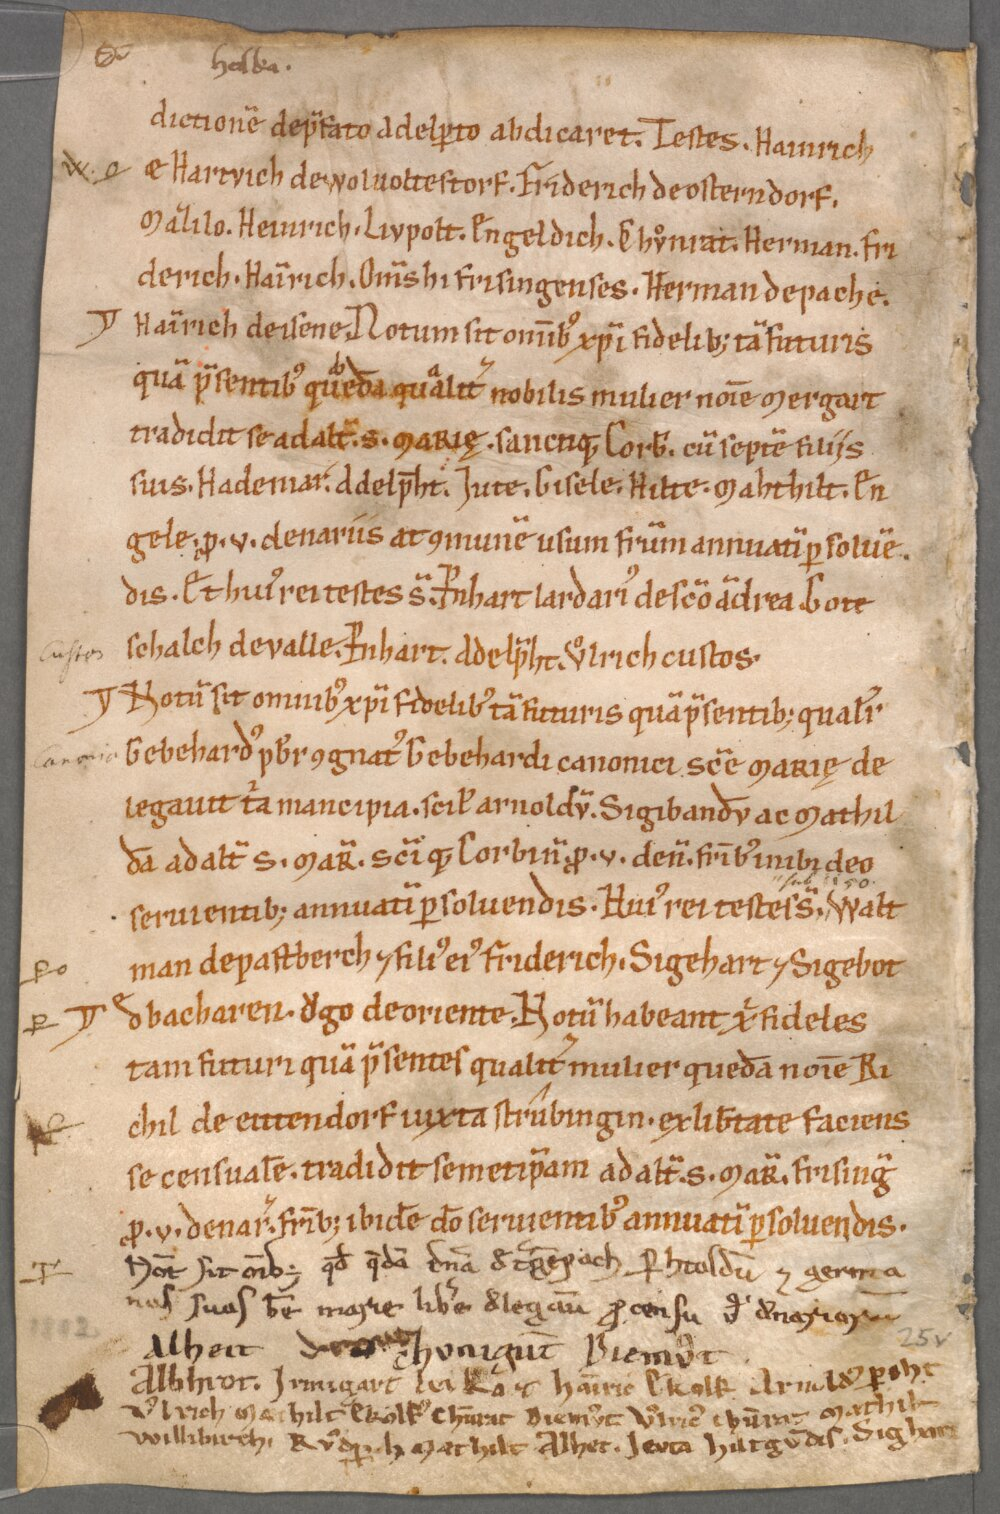 haska.
dictionē dep̄fato Adelp̄to abdicaret. Testes. Hainrich
W. O
& Hartvich dewoluoltestorf. Friderich deosterndorf.
Mälilo. Heinrich. Livpolt. Engeldich. Chv̊nrat. Herman. Fri
derich. Hai̅rich. Om̅s hi frisingenses. Herman depache.
Hai̅rich deisene. Notum sit om̅ib9 xp̅i fidelib; tā futuris
quā p̄sentib9 quedā qualit̄ nobilis mulier noīe Mergart
tradidit se ad alt̄. S. MARIĘ. sanctiq; Corb̄. cū septē filijs
suis. Hademar. Adelp̄ht. Jute. Gisele. Hilte. Mahthilt. En
gele. p̱. v. denariis at 9munē usum fr̄um annuatī p̱soluē
dis. Et hui9 rei testes s̄. Enhart lardari9 de sc̄o ādrea. Gote
Custos
schalch devalle. Enhart. Adelp̄ht. Vͦlrich custos.
Notū sit omnib9 xp̅i fidelib9 tā futuris quā p̄sentib; qualit̄
Canonic
Gebehard9 p̅br 9gnat9 Gebehardi canonici sc̄e MARIĘ de
legauit t̄a mancipia. scil̄ arnoldv̄. Sigibandv̄ ac Mathil
dā ad alt̄ S. MAR̄. sc̄i q; Corbin̄ p̱. v. den̄. fr̄ib9 inibi deo
1150.
seruientib; annuatī p̱soluendis. Hui9 rei testes s̄. Walt
po
man depastberch 7 fili9 ei9 friderich. Sigehart 7 Sigebot
p
d̊bacharen. Vgo deoriente. Notū habeant xp̄i fideles
tam futuri quā p̄sentes qualit̄ mulier quedā noīe Ri
chil de eittendorf iuxta strubingin. ex lib̄tate faciens
se censualē. tradidit semetip̄am ad alt̄. S. MAR̄. frising̅
p̱. v. denar̄. fr̄ib; ibidē dō seruientib9 annuatī p̱soluendis.
Not̄ sit om̄ib; qd̄ q̄dā dn̄a Perhtoldū 7 germa
nos suos libe᷑ delegauit p̱ censu v denariorum
Alheit Chvnigunt Diemv̊t
Albhrot. Irmigart haīric Ekolk Arnold9 p̱eht
Vͦlrich Mathilt Ekolk9 Chūrat Diemv̊t Vͦlric9 Chūrat Mathilt
Willibirch. Rv̊dp̱h Mathilt Alhet. Jevta Hiltgvdis. Sighart
25v